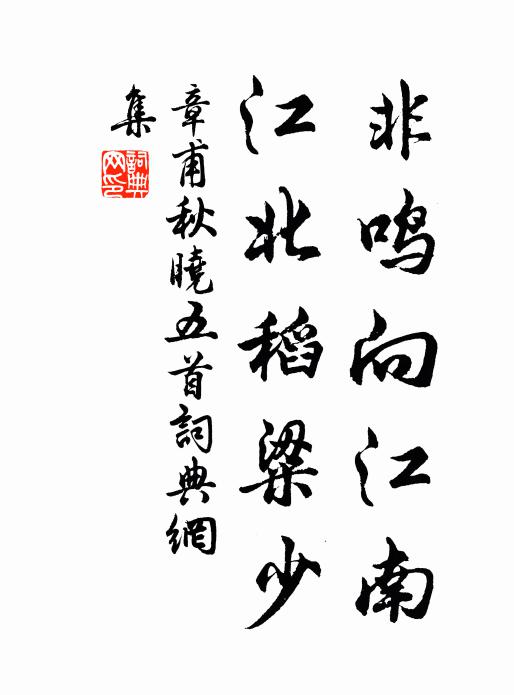 非鸣向江南
江北稻粱少
章甫秋曉五首詞典網
集
詞典
网印